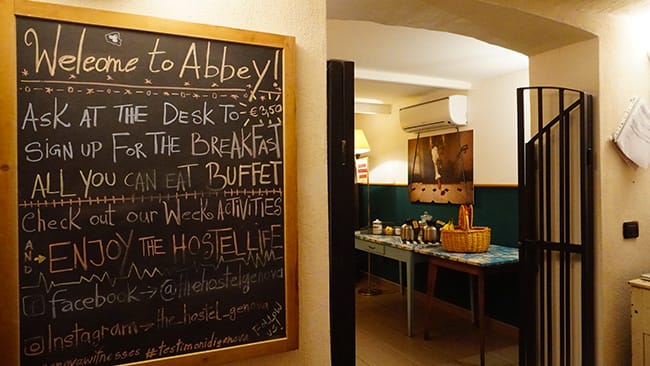 Welcome to Abbey!
ASK AT THE DESK TO €3,50
SIGN UP FOR THE BREAKFAST
ALL YOU CAN EAT BUFFET
CHECK OUT OUR WEEK ACTIVITIES
AND ENJOY THE HOSTEL LIFE
Facebook → @thehostelgenova
Instagram → the_hostel_genova
FOLLOW US!
#testimonidigenova